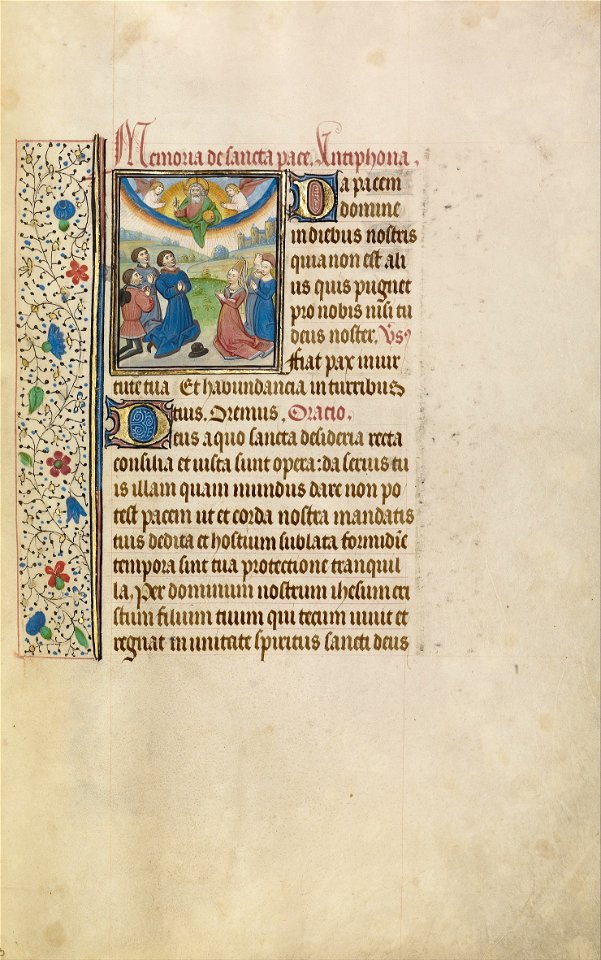 Memoria de sancta pace. Antiphona.
Da pacem
domine
in diebus nostris
quia non est ali
us quis pugnet
pro nobis nisi tu
deus noster. Vs
Fiat pax in uir
tute tua Et habundancia in turribus
tuis. Oremus. Oratio.
Deus a quo sancta desideria recta
consilia et iusta sunt opera: da seruis tu
is illam quam mundus dare non po
test pacem ut et corda nostra mandatis
tuis dedita et hostium sublata formidie
tempora sint tua protectione tranquil
la. Per dominum nostrum ihesum cri
stum filium tuum qui tecum uiuit et
regnat in unitate spiritus sancti deus